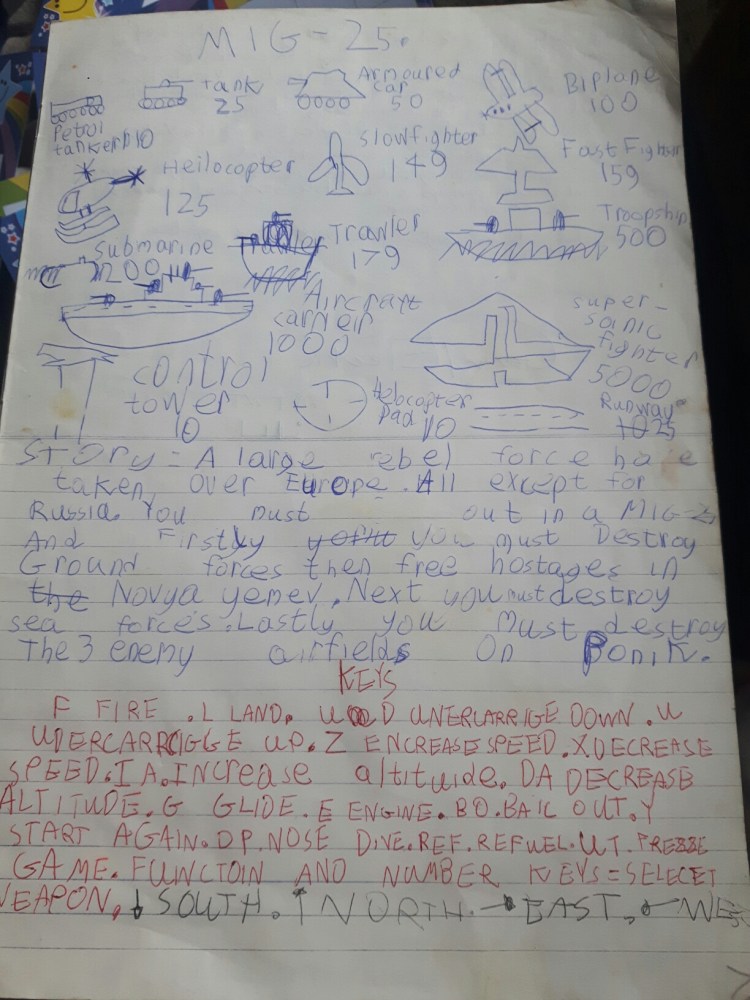 MIG-25.
tank
25
Armoured
car
50
Biplane
100
Petrol
tanker 10
Slowfighter
149
Fast Fighter
159
Heilocopter
125
Troopship
500
Trawler
179
Submarine
200
Aircraft
carrier
1000
super-
sonic
fighter
5000
control
tower
10
Helocopter
Pad 10
Runway
25
Story = A large rebel force have
taken over Europe. All except for
Russia. You must out in a MIG-25
And Firstly you must Destroy
Ground forces then free hostages in
the Novya yemev. Next you must destroy
sea forces. Lastly you must destroy
The 3 enemy airfields on Ponik.
KEYS
F FIRE .L LAND. U D UNERCARRIGE DOWN .U
UDERCARRIGGE UP. Z ENCREASE SPEED. X DECREASE
SPEED. I A. INCrease altituide. DA DECREASE
ALTITUDE. G GLIDE. E ENGINE. BO. BAIL OUT. Y
START AGAIN. DP. NOSE DIVE. REF. REFUEL. UT.
GAME. FUNCTOIN AND NUMBER KEYS = SELECET
WEAPON. ↓ SOUTH. ↑ NORTH. → EAST. ← WES